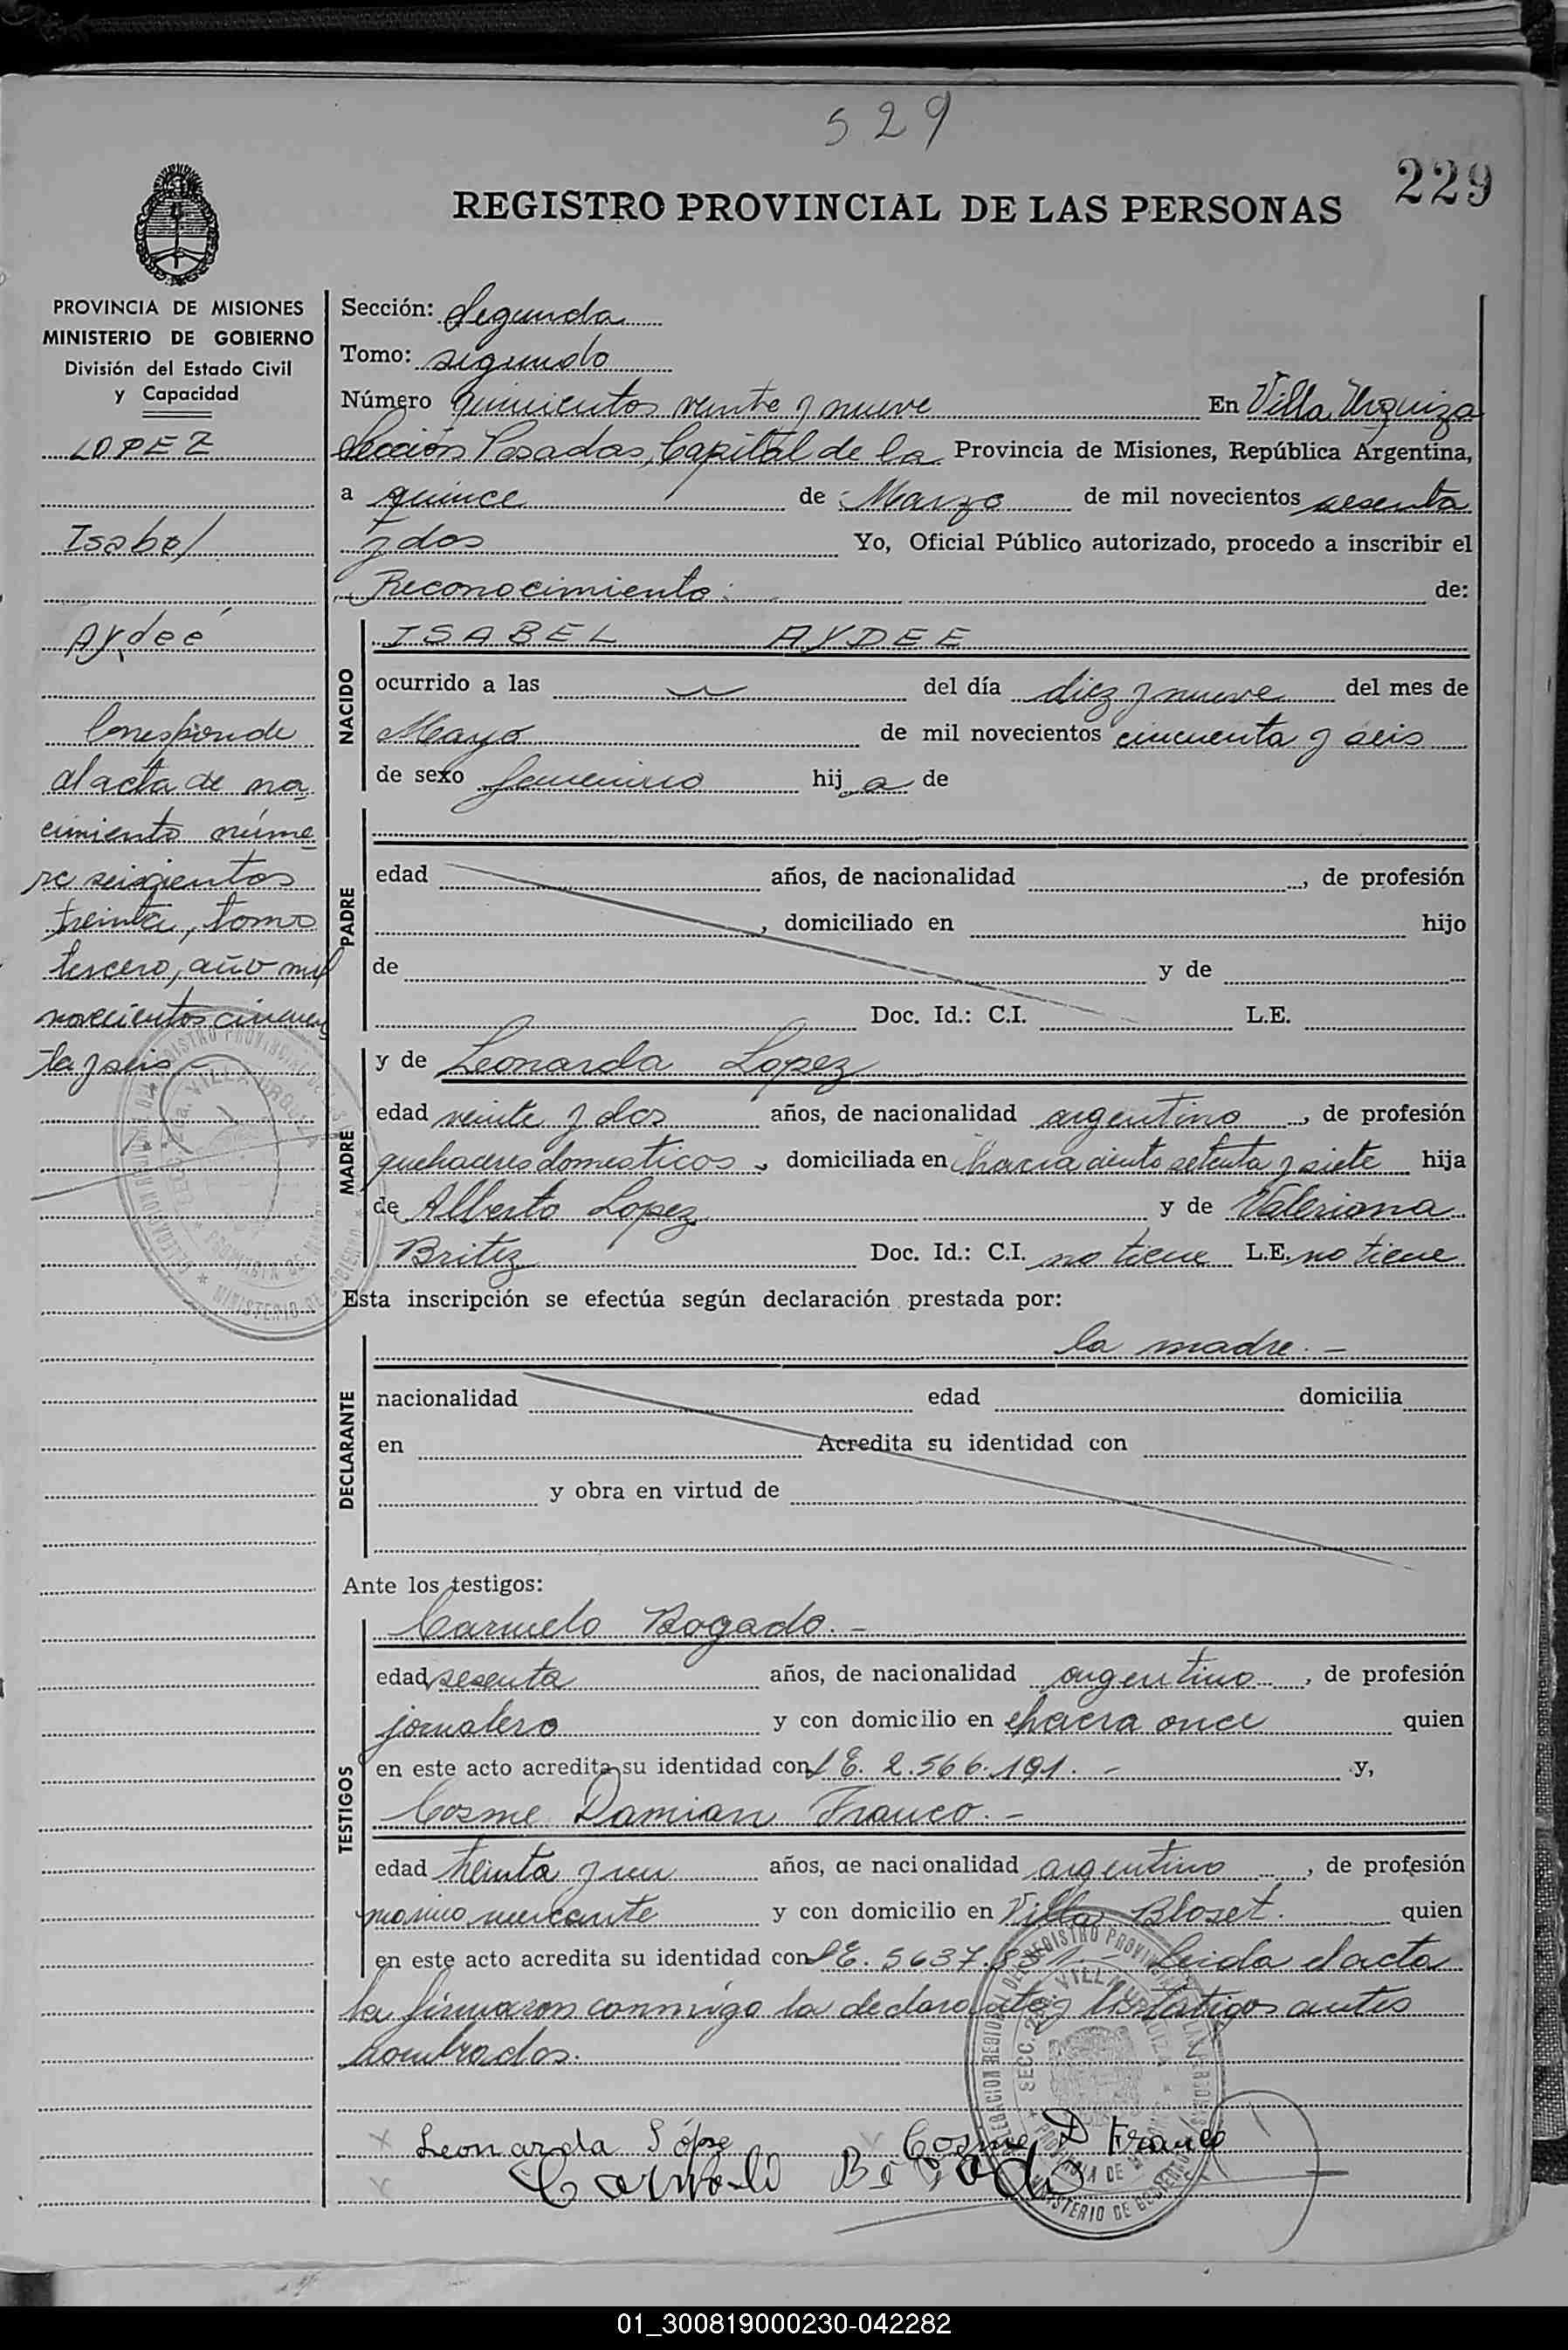 529
229
REGISTRO PROVINCIAL DE LAS PERSONAS
PROVINCIA DE MISIONES
MINISTERIO DE GOBIERNO
División del Estado Civil
y Capacidad
LOPEZ
Isabel
Aydeé
Corresponde
al acta de na
cimiento núme
ro seiscientos
treinta, tomo
tercero, año mil
novecientos cincuen
ta y seis.-
Sección: Segunda
Tomo: segundo
Número quinientos veinte y nueve En Villa Urquiza
Sección Posadas, Capital de la Provincia de Misiones, República Argentina,
a quince de Marzo de mil novecientos sesenta
y dos Yo, Oficial Público autorizado, procedo a inscribir el
Reconocimiento: de:
NACIDO
ISABEL AYDEE
ocurrido a las del día diez y nueve del mes de
Mayo de mil novecientos cincuenta y seis
de sexo femenino hij a de
PADRE
edad años, de nacionalidad , de profesión
, domiciliado en hijo
de y de
Doc. Id.: C.I. L.E.
MADRE
y de Leonarda Lopez
edad veinte y dos años, de nacionalidad argentina , de profesión
quehaceres domesticos , domiciliada en chacra ciento setenta y siete hija
de Alberto Lopez y de Valeriana
Britez Doc. Id.: C.I. no tiene L.E. no tiene
Esta inscripción se efectúa según declaración prestada por:
DECLARANTE
la madre.-
nacionalidad edad domicilia
en Acredita su identidad con
y obra en virtud de
Ante los testigos:
TESTIGOS
Carmelo Bogado.-
edad sesenta años, de nacionalidad argentino , de profesión
jornalero y con domicilio en chacra once quien
en este acto acredita su identidad con L.E. 2.566.191.- y,
Cosme Damian Franco.-
edad treinta y un años, de nacionalidad argentino , de profesión
marino mercante y con domicilio en Villa Bloset. quien
en este acto acredita su identidad con L.E. 5637. Leida el acta
la firmaron conmigo la declarante y los testigos antes
nombrados.
Leonarda Lópe Cosme D Franco
01_300819000230-042282